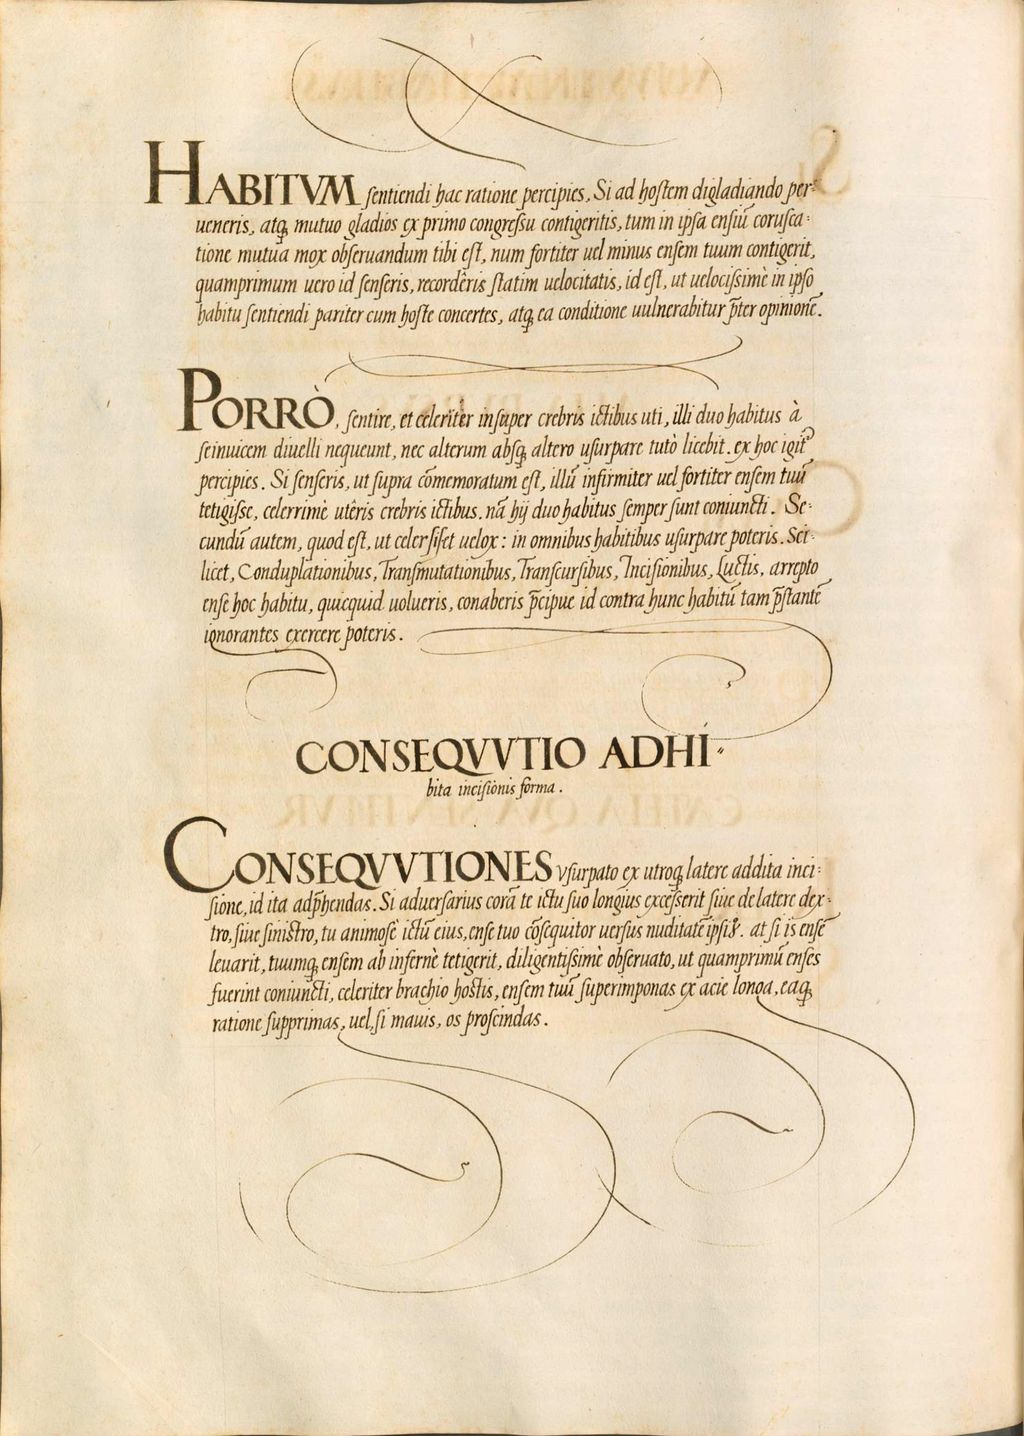 HABITVM sentiendi hac ratione percipies, Si ad hostem digladiando per=
ueneris, atq; mutuo gladios ex primo congressu contigeritis, tum in ipsa ensiū corusca=
tione mutua mox obseruandum tibi est, num fortiter uel minus ensem tuum contigerit,
quamprimum uero id senseris, recordêris statim uelocitatis, id est, ut uelocissimè in ipso
habitu sentiendi pariter cum hoste concertes, atq; ea conditione uulnerabitur p̄ter opinionē.
PORRÒ, sentire, et celeritèr insuper crebris ictibus uti, illi duo habitus à
seinuicem diuelli nequeunt, nec alterum absq; altero usurpare tutò licebit. ex hoc igit
percipies. Si senseris, ut supra cōmemoratum est, illū infirmiter uel fortiter ensem tuū
tetigisse, celerrimè utêris crebris ictibus. nā hij duo habitus semper sunt coniuncti. Se=
cundū autem, quod est, ut celer sis et uelox: in omnibus habitibus usurpare poteris. Sci=
licet, Conduplationibus, Transmutationibus, Transcursibus, Incisionibus, Luctis, arrepto
ense hoc habitu, quicquid uolueris, conaberis p̄cipue id contra hunc habitū tam p̄stantē
ignorantes exercere poteris.
CONSEQVVTIO ADHI=
bita incisionis forma.
CONSEQVVTIONES vsurpato ex utroq; latere addita inci=
sione, id ita adp̄hendas. Si aduersarius corā te ictu suo longius excesserit siue de latere dex=
tro, siue sinistro, tu animosè ictū eius, ense tuo cōsequitor uersus nuditatē ipsiꝰ. at si is ensē
leuarit, tuumq; ensem ab infernè tetigerit, diligentissimè obseruato, ut quamprimū enses
fuerint coniuncti, celeriter brachio hostis, ensem tuū superimponas ex acie longa, eaq;
ratione supprimas, uel, si mauis, os proscindas.